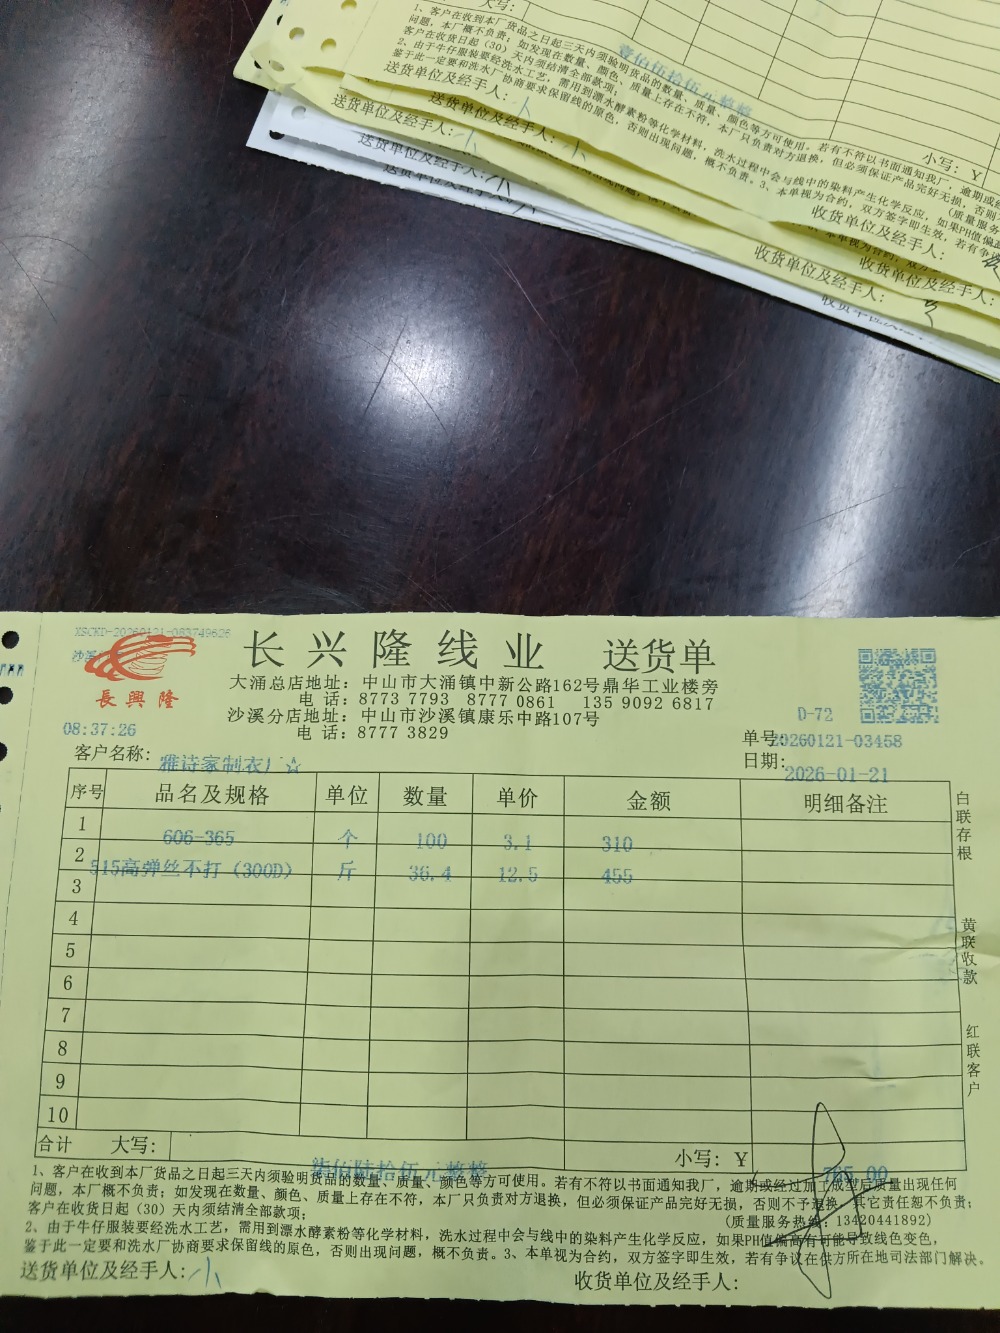 大写:
壹佰伍拾伍元整整
1、客户在收到本厂货品之日起三天内须验明货品的数量、质量、颜色等方可使用。若有不符以书面通知我厂，逾期或经
问题，本厂概不负责；如发现在数量、颜色、质量上存在不符，本厂只负责对方退换，但必须保证产品完好无损，否则
客户在收货日起（30）天内须结清全部款项；
(质量服务
2、由于牛仔服装要经洗水工艺，需用到漂水酵素粉等化学材料，洗水过程中会与线中的染料产生化学反应，如果PH值偏
鉴于此一定要和洗水厂协商要求保留线的原色，否则出现问题，概不负责。3、本单视为合约，双方签字即生效，若有争
小写：￥
送货单位及经手人:
收货单位及经手人:
送货单位及经手人:
收货单位及经手人:
送货单位及经手人:
收货单位及经手人:
送货单位及经手人:
送货单位及经手人:
收货单位及经手人:
XSCKD-20260121-083749626
長興隆
长兴隆线业 送货单
大涌总店地址：中山市大涌镇中新公路162号鼎华工业楼旁
电 话：8773 7793 8777 0861 135 9092 6817
沙溪分店地址：中山市沙溪镇康乐中路107号
电 话：8777 3829
D-72
08:37:26
单号:20260121-03458
客户名称: 雅诗家制衣厂☆
日期: 2026-01-21
序号 品名及规格 单位 数量 单价 金额 明细备注
1 606-365 个 100 3.1 310
2 515高弹丝不打（300D） 斤 36.4 12.5 455
3
4
5
6
7
8
9
10
合计 大写: 柒佰陆拾伍元整整 小写：￥ 765.00
白联存根
黄联收款
红联客户
1、客户在收到本厂货品之日起三天内须验明货品的数量、质量、颜色等方可使用。若有不符以书面通知我厂，逾期或经过加工成型后质量出现任何
问题，本厂概不负责；如发现在数量、颜色、质量上存在不符，本厂只负责对方退换，但必须保证产品完好无损，否则不予退换，其它责任恕不负责;
客户在收货日起（30）天内须结清全部款项；
(质量服务热线：13420441892)
2、由于牛仔服装要经洗水工艺，需用到漂水酵素粉等化学材料，洗水过程中会与线中的染料产生化学反应，如果PH值偏高有可能导致线色变色，
鉴于此一定要和洗水厂协商要求保留线的原色，否则出现问题，概不负责。3、本单视为合约，双方签字即生效，若有争议在供方所在地司法部门解决。
送货单位及经手人: 小
收货单位及经手人: